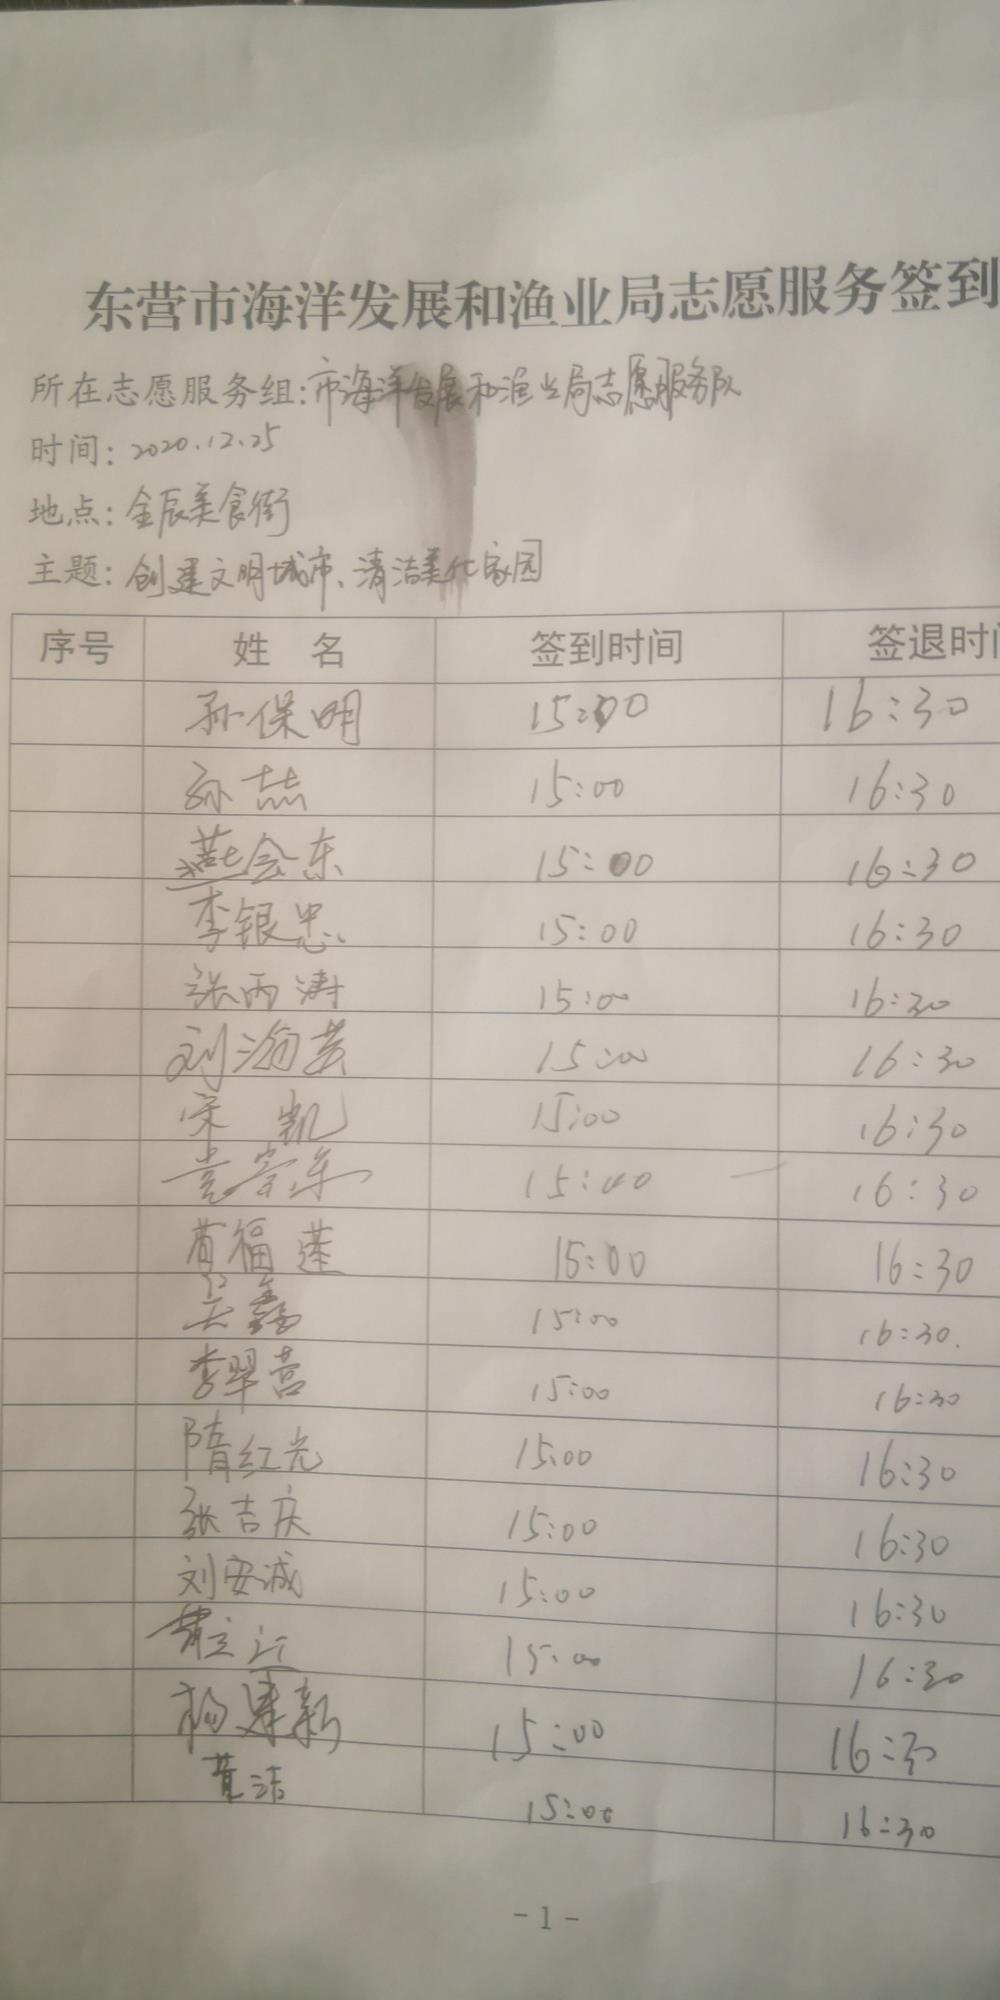 东营市海洋发展和渔业局志愿服务签到
所在志愿服务组:市海洋发展和渔业局志愿服务队
时间:2020.12.25
地点:金辰美食街
主题:创建文明城市、清洁美化家园
序号 姓 名 签到时间 签退时
孙保明 15:00 16:30
孙喆 15:00 16:30
燕会东 15:00 16:30
李银忠 15:00 16:30
张丙涛 15:00 16:30
刘 15:00 16:30
宋 凯 15:00 16:30
15:00 16:30
福莲 15:00 16:30
吴鑫 15:00 16:30.
李翠营 15:00 16:30
隋红光 15:00 16:30
张吉庆 15:00 16:30
刘安诚 15:00 16:30
15:00 16:30
杨建新 15:00 16:30
黄洁 15:00 16:30
- 1 -